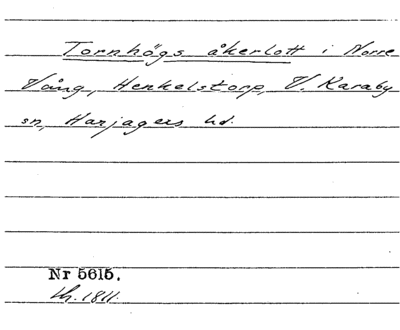 Tornhögs åkerlott i Norre
Vång, Henkelstorp, V. Karaby
sn, Harjagers hd.
Nr 5615.
Lh. 1811.